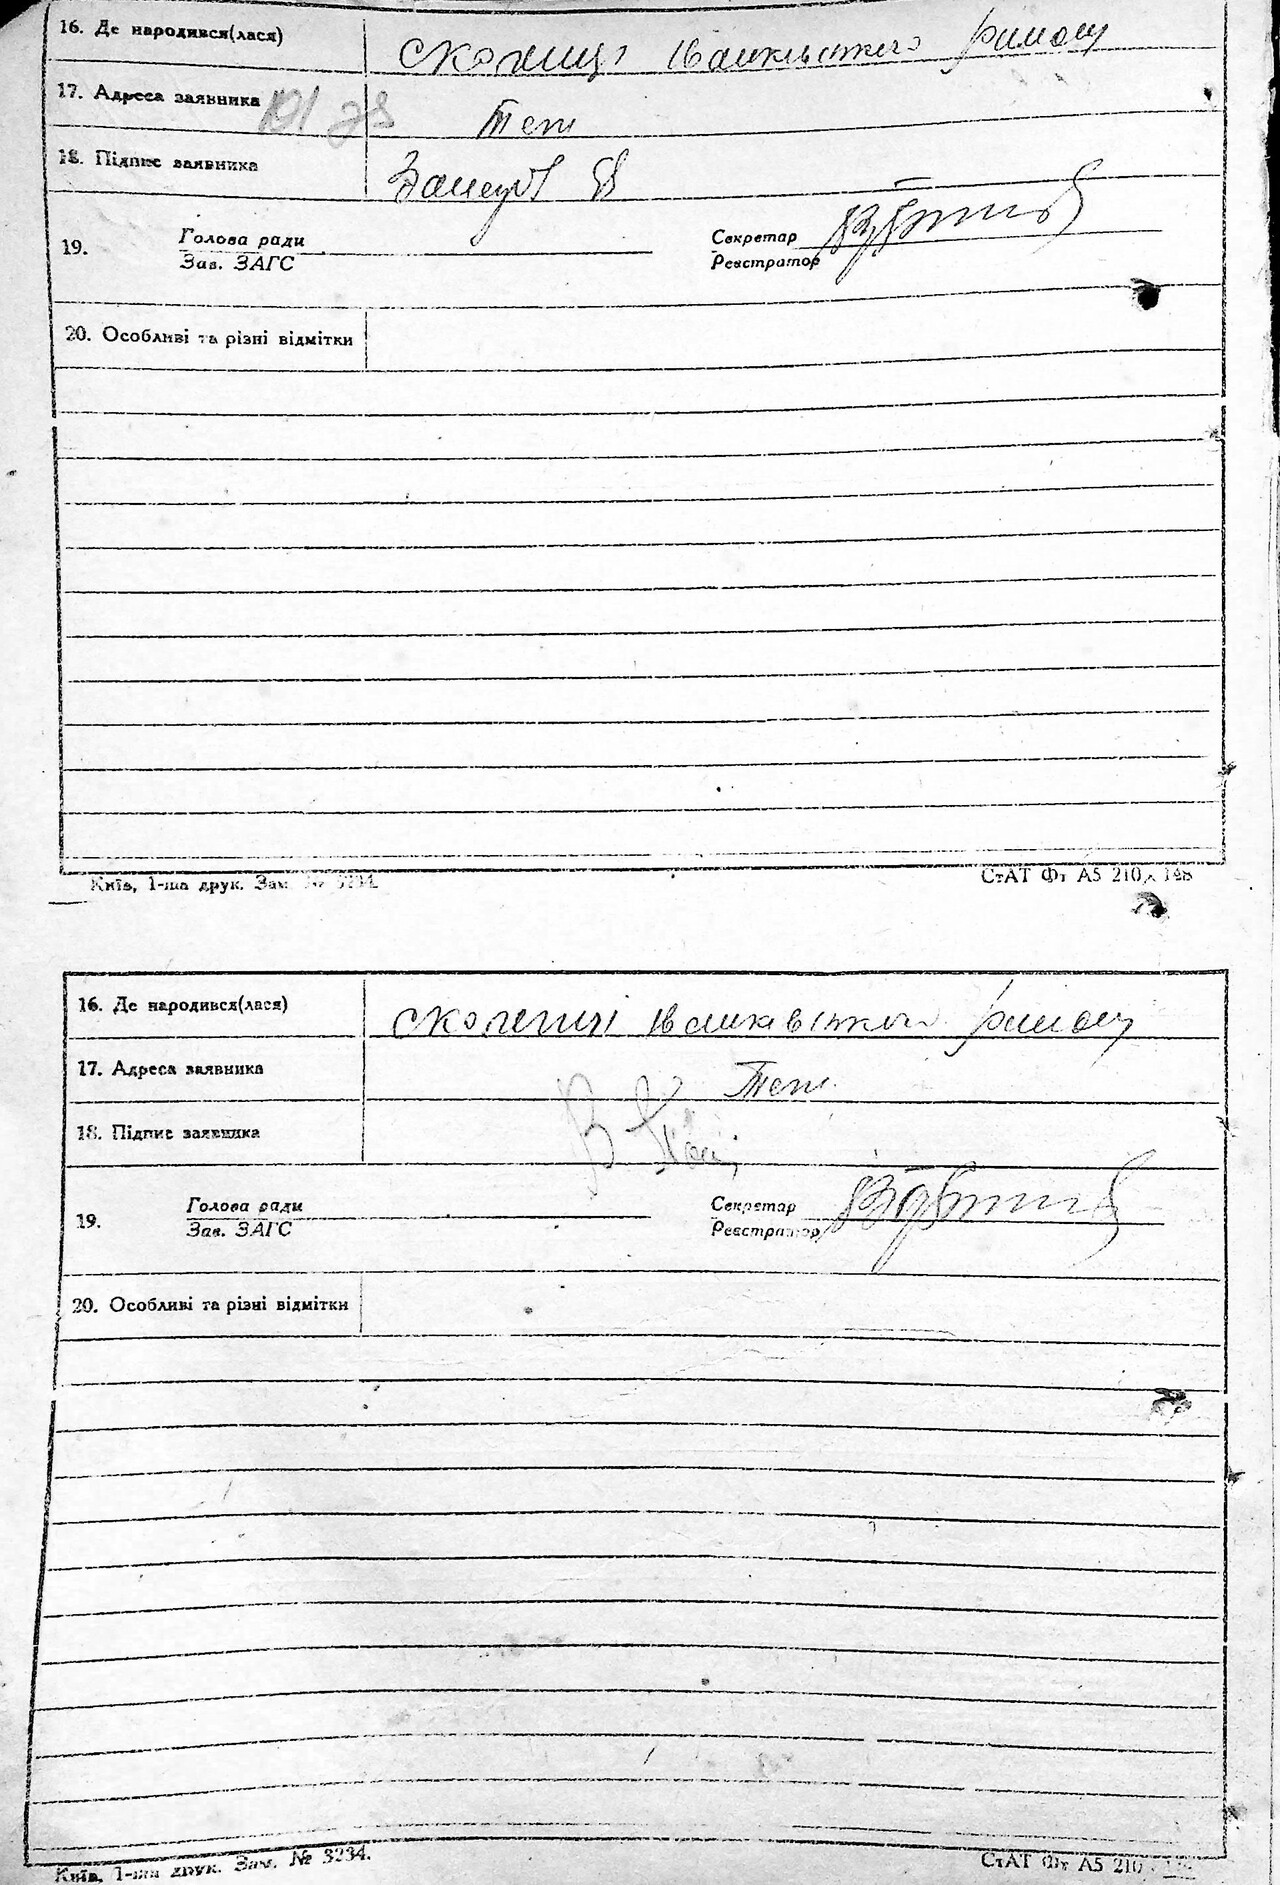 16. Де народився(лася) с. Колєнці Іванківського району
17. Адреса заявника Теж
18. Підпис заявника
19. Голова ради Секретар
Зав. ЗАГС Реєстратор
20. Особливі та різні відмітки
Київ, 1-ша друк. Зам. № 3234.
СтАТ Фт А5 210 х 148
16. Де народився(лася) с. Колєнці Іванківського району
17. Адреса заявника Теж
18. Підпис заявника
19. Голова ради Секретар
Зав. ЗАГС Реєстратор
20. Особливі та різні відмітки
Київ, 1-ша друк. Зам. № 3234.
СтАТ Фт А5 210